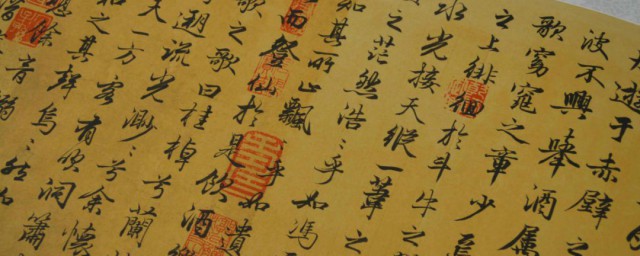 遊于赤壁
波不興舉酒屬
歌窈窕之章少焉
之上徘徊於斗牛之
水光接天縱一葦之
之茫然浩〻乎如馮
知其所止飄〻乎如遺
而登仙於是飲酒
歌之歌曰桂棹兮蘭
遡流光渺〻兮余懷
天一方客有吹洞簫
和之其聲嗚〻然如
餘音